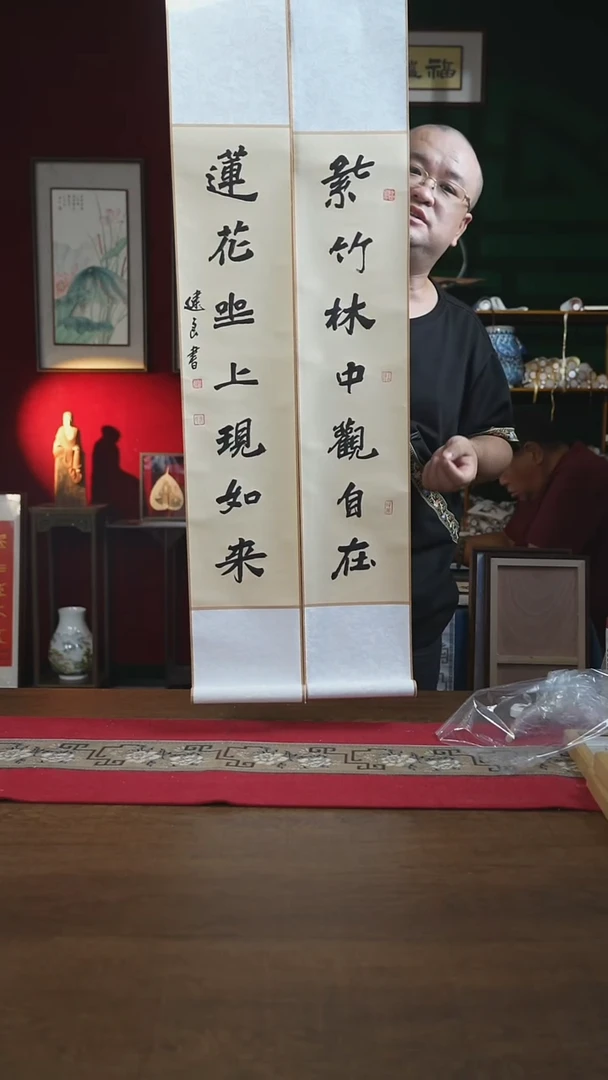 紫竹林中觀自在
蓮花坐上現如来
建良書
福